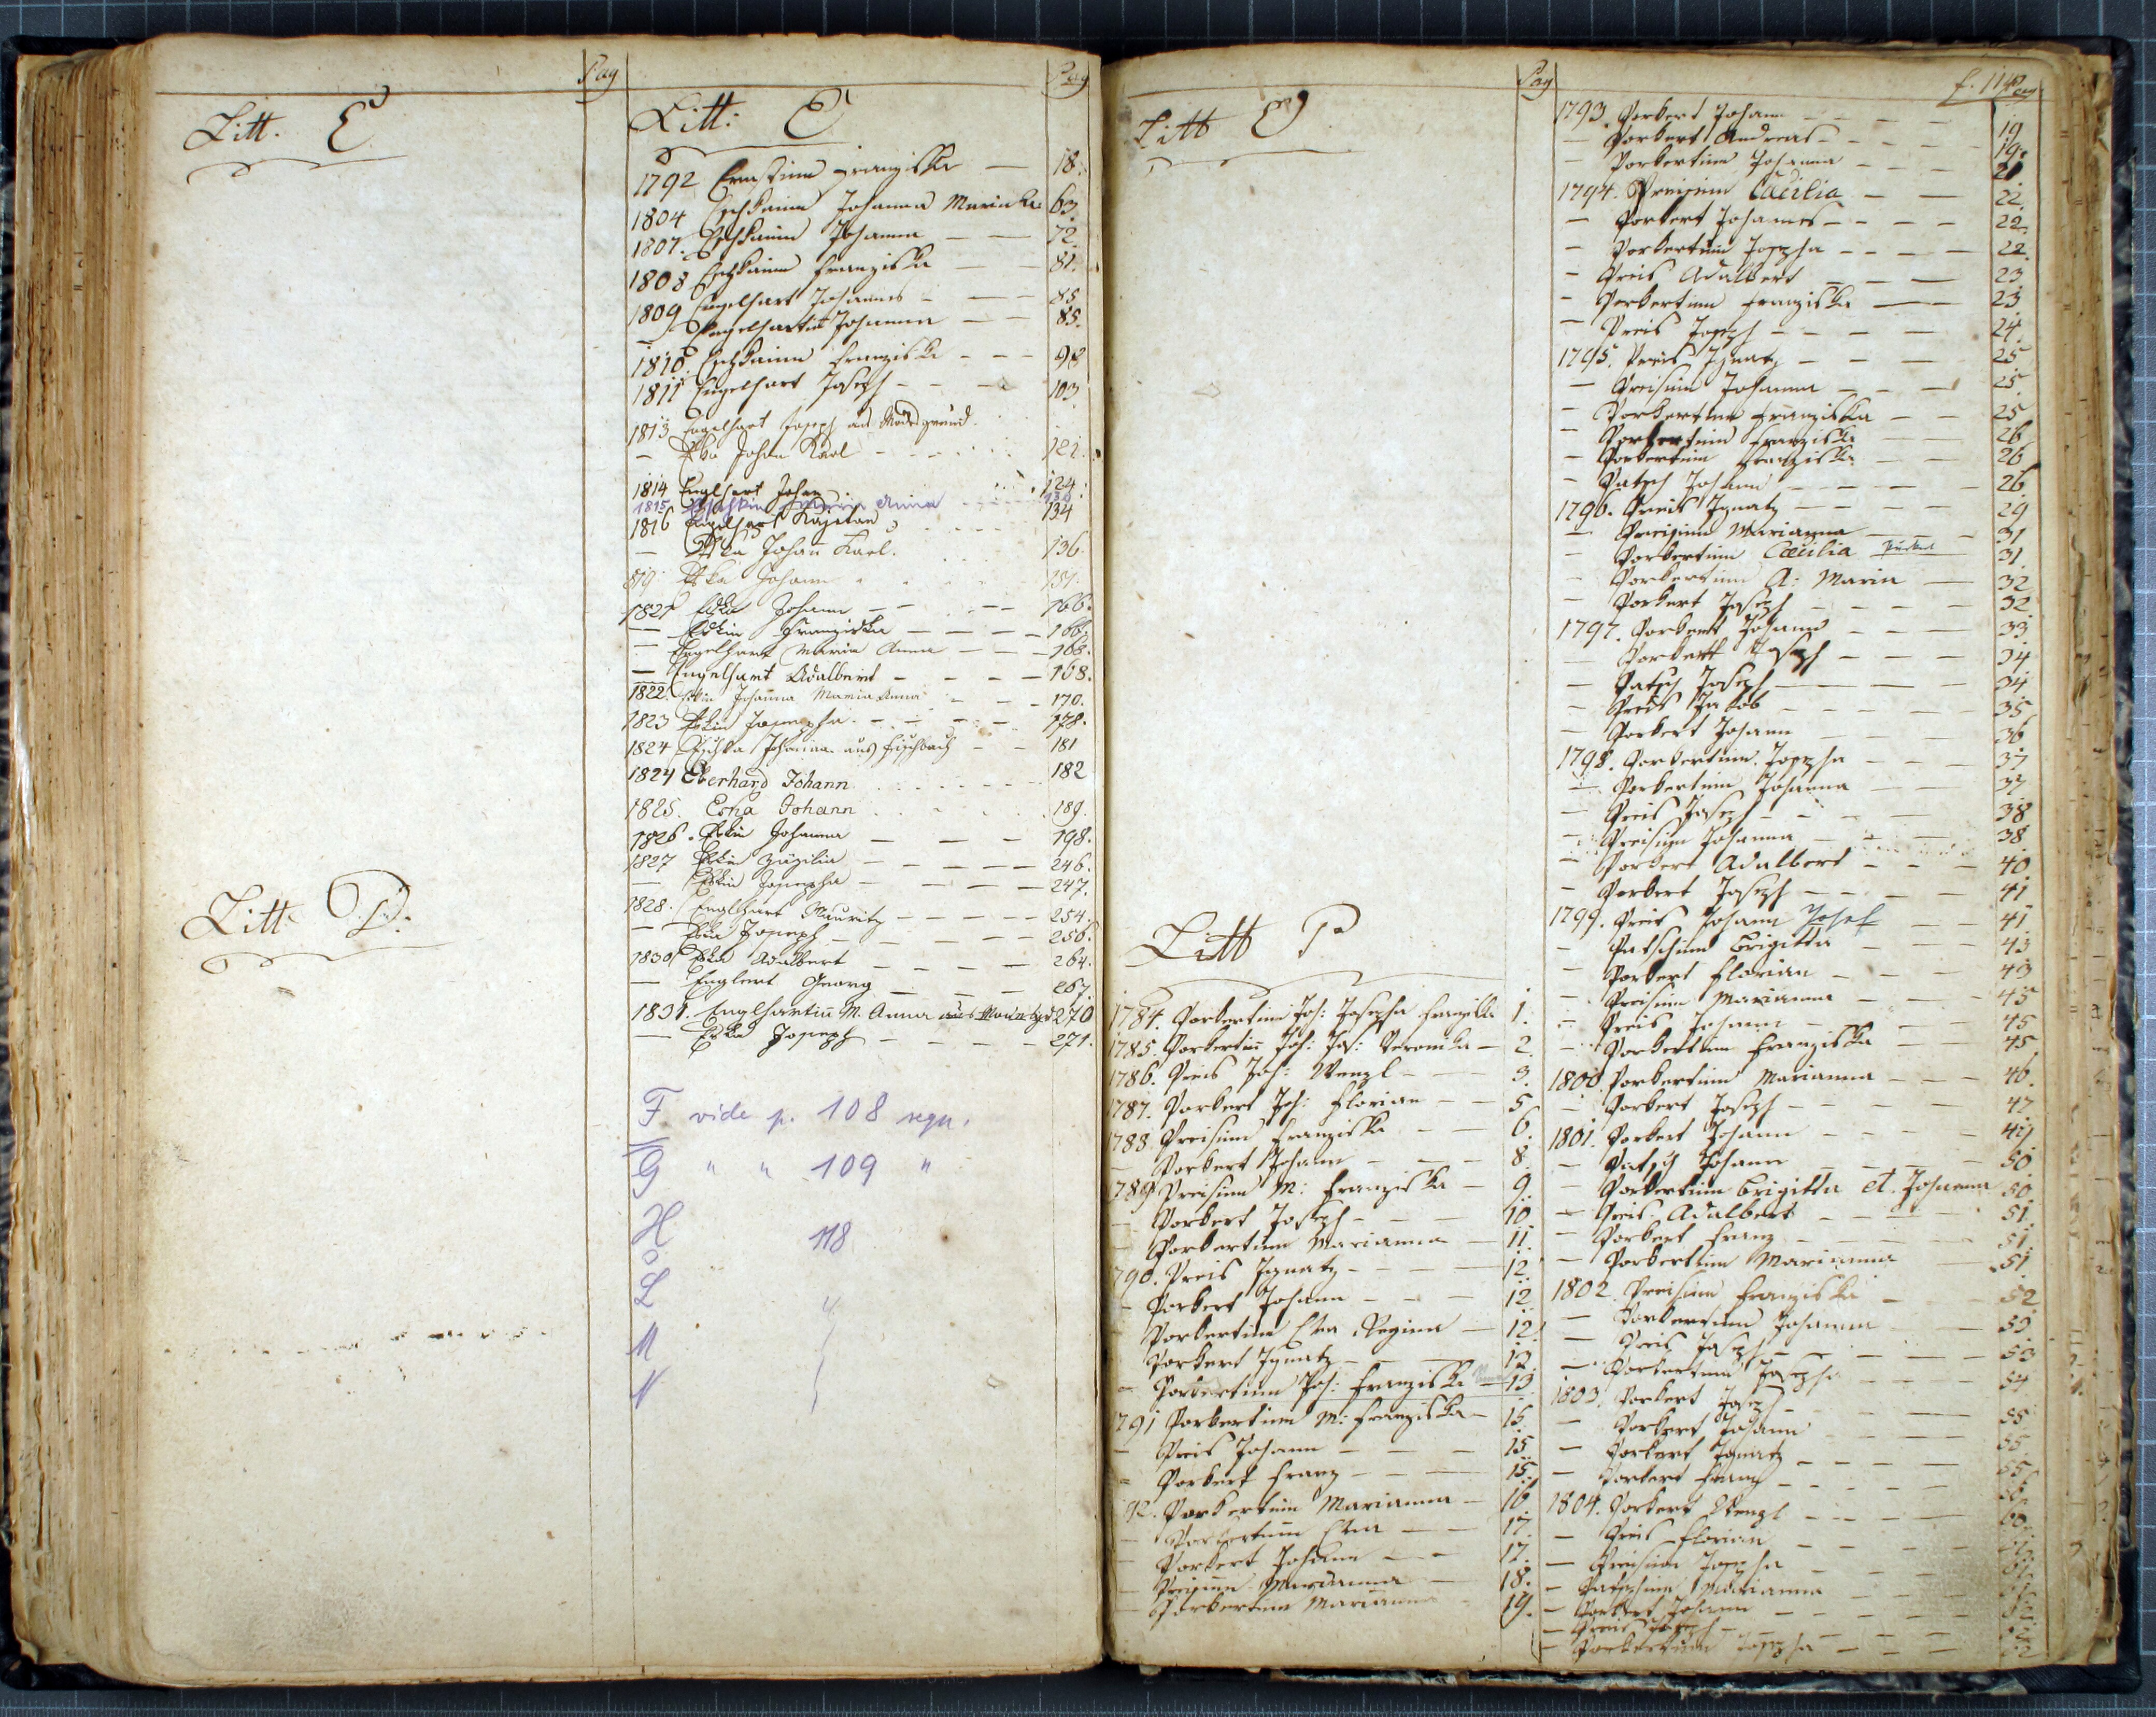 Pag
Litt. E
Litt. D.
Pag
Litt: E
1792 Franziska — 18.
1804 Johanna 63.
1807. Johanna — 72.
1808 Franziska — 81.
1809 Engelhart Johannes — 85.
Engelhartin Johanna — 85.
1810. Franziska
1811 Engelhart Joseph — 103
1813 Engelhart Joseph aus
— Johan Karl 121.
1814 Englhart Johan 124.
1815 Maria Anna 130
1816 Engelhart Kajetan 134
— Eska Johann Karl. 136.
819 Eska Johann 157.
1821 Eska Johann — 166.
— Eskin Franziska — 166.
— Engelhart Maria Anna — 168.
— Engelhart Adalbert — 168.
1822. Eskin Johanna Maria Anna 170.
1823 Eskin Josepha. 178.
1824 Johanna aus Fischbach — 181
1824 Eberhard Johann 182
1825. Johann 189.
1826. Eskin Johanna — 198.
1827 Eskin — 246.
— Eskin Josepha — 247.
1828. Englhart Mauritz — 254.
— Eska Joseph — 256.
1830 Eska Adalbert — 264.
— Englert Georg — 267.
1831. Englhartin M. Anna aus 270
— Eska Joseph — 271.
F. vide p. 108 sequ.
G " " 109 "
H 118
L
M
N
Pag
Litt E
Litt P
1784. Porkertin Joh: Josepha Franziska 1.
1785. Porkertin Joh: Jos: Veronika — 2.
1786. Preis Joh: Wenzl — 3.
1787. Porkert Joh: Florian — 5
1788. Preisin Franziska — 6.
— Porkert Johann — 8.
789 Preisin M: Franziska — 9
— Porkert Joseph — 10
— Porkertin Marianna — 11.
790. Preis Ignatz — 12.
— Porkert Johann — 12.
Porkertin Eva Regina — 12.
Porkert Ignatz — 13.
— Porkertin Joh: Franziska — 13.
791 Porkertin M: Franziska — 15.
— Preis Johann — 15.
— Porkert Franz — 15.
92. Porkertin Marianna — 16
— Porkertin Eva — 17.
— Porkert Johann — 17.
— Preisin Marianna — 18.
— Porkertin Marianna 19.
f. 114
Pag
1793. Porkert Johann — 19
— Porkert Andreas — 19.
— Porkertin Johanna — 21
1794. Preisin Cäcilia — 22.
— Porkert Johannes — 22.
— Porkertin Josepha — 22.
— Preis Adalbert — 23
— Porkertin Franziska — 23
— Preis Joseph — 24.
1795. Preis Ignatz — 25
— Preisin Johanna — 25
— Porkertin Franziska — 25
— Porkertin Franziska — 26
— Porkertin Franziska — 26
— Patsch Johann — 26
1796. Preis Ignatz — 29
— Preisin Marianna — 31
— Porkertin Caecilia 31.
— Porkertin A: Maria — 32
— Porkert Joseph — 32
1797. Porkert Johann — 33
— Porkert Joseph — 34
— Patsch Joseph — 34
— Preis Jakob — 35
— Porkert Johann — 36
1798. Porkertin Josepha — 37
— Porkertin Johanna — 37
— Preis Joseph — 38
— Preisin Johanna — 38
— Porkert Adalbert — 40
— Porkert Joseph — 41
1799. Preis Johann Josef — 41
— Patschin Brigitta — 43
— Porkert Florian — 43
— Preisin Marianna — 45
— Preis Johann — 45
— Porkertin Franziska — 45
1800. Porkertin Marianna — 46.
— Porkert Joseph — 47
1801. Porkert Johann — 49
— Patsch Johann — 50
— Porkertin Brigitta et Johanna 50
— Preis Adalbert — 51
— Porkert Franz — 51.
— Porkertin Marianna — 51
1802. Preisin Franziska — 52
— Porkertin Johanna — 53
— Preis Joseph — 53
— Porkertin Josepha — 54
1803. Porkert Joseph — 55
— Porkert Johann — 55
— Porkert Ignatz — 55
— Porkert Franz —
1804. Porkert Wenzl — 60
— Preis Florian —
— Preisin Josepha —
— Patschin Marianna
— Porkert Johann —
— Preis Joseph —
— Porkertin Josepha —